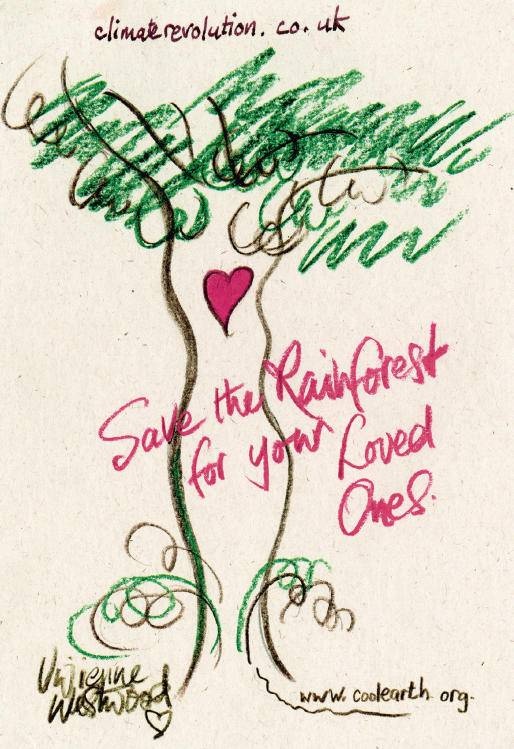 climaterevolution.co.uk
Save the Rainforest
for your Loved
Ones.
Vivienne
Westwood
www.coolearth.org.